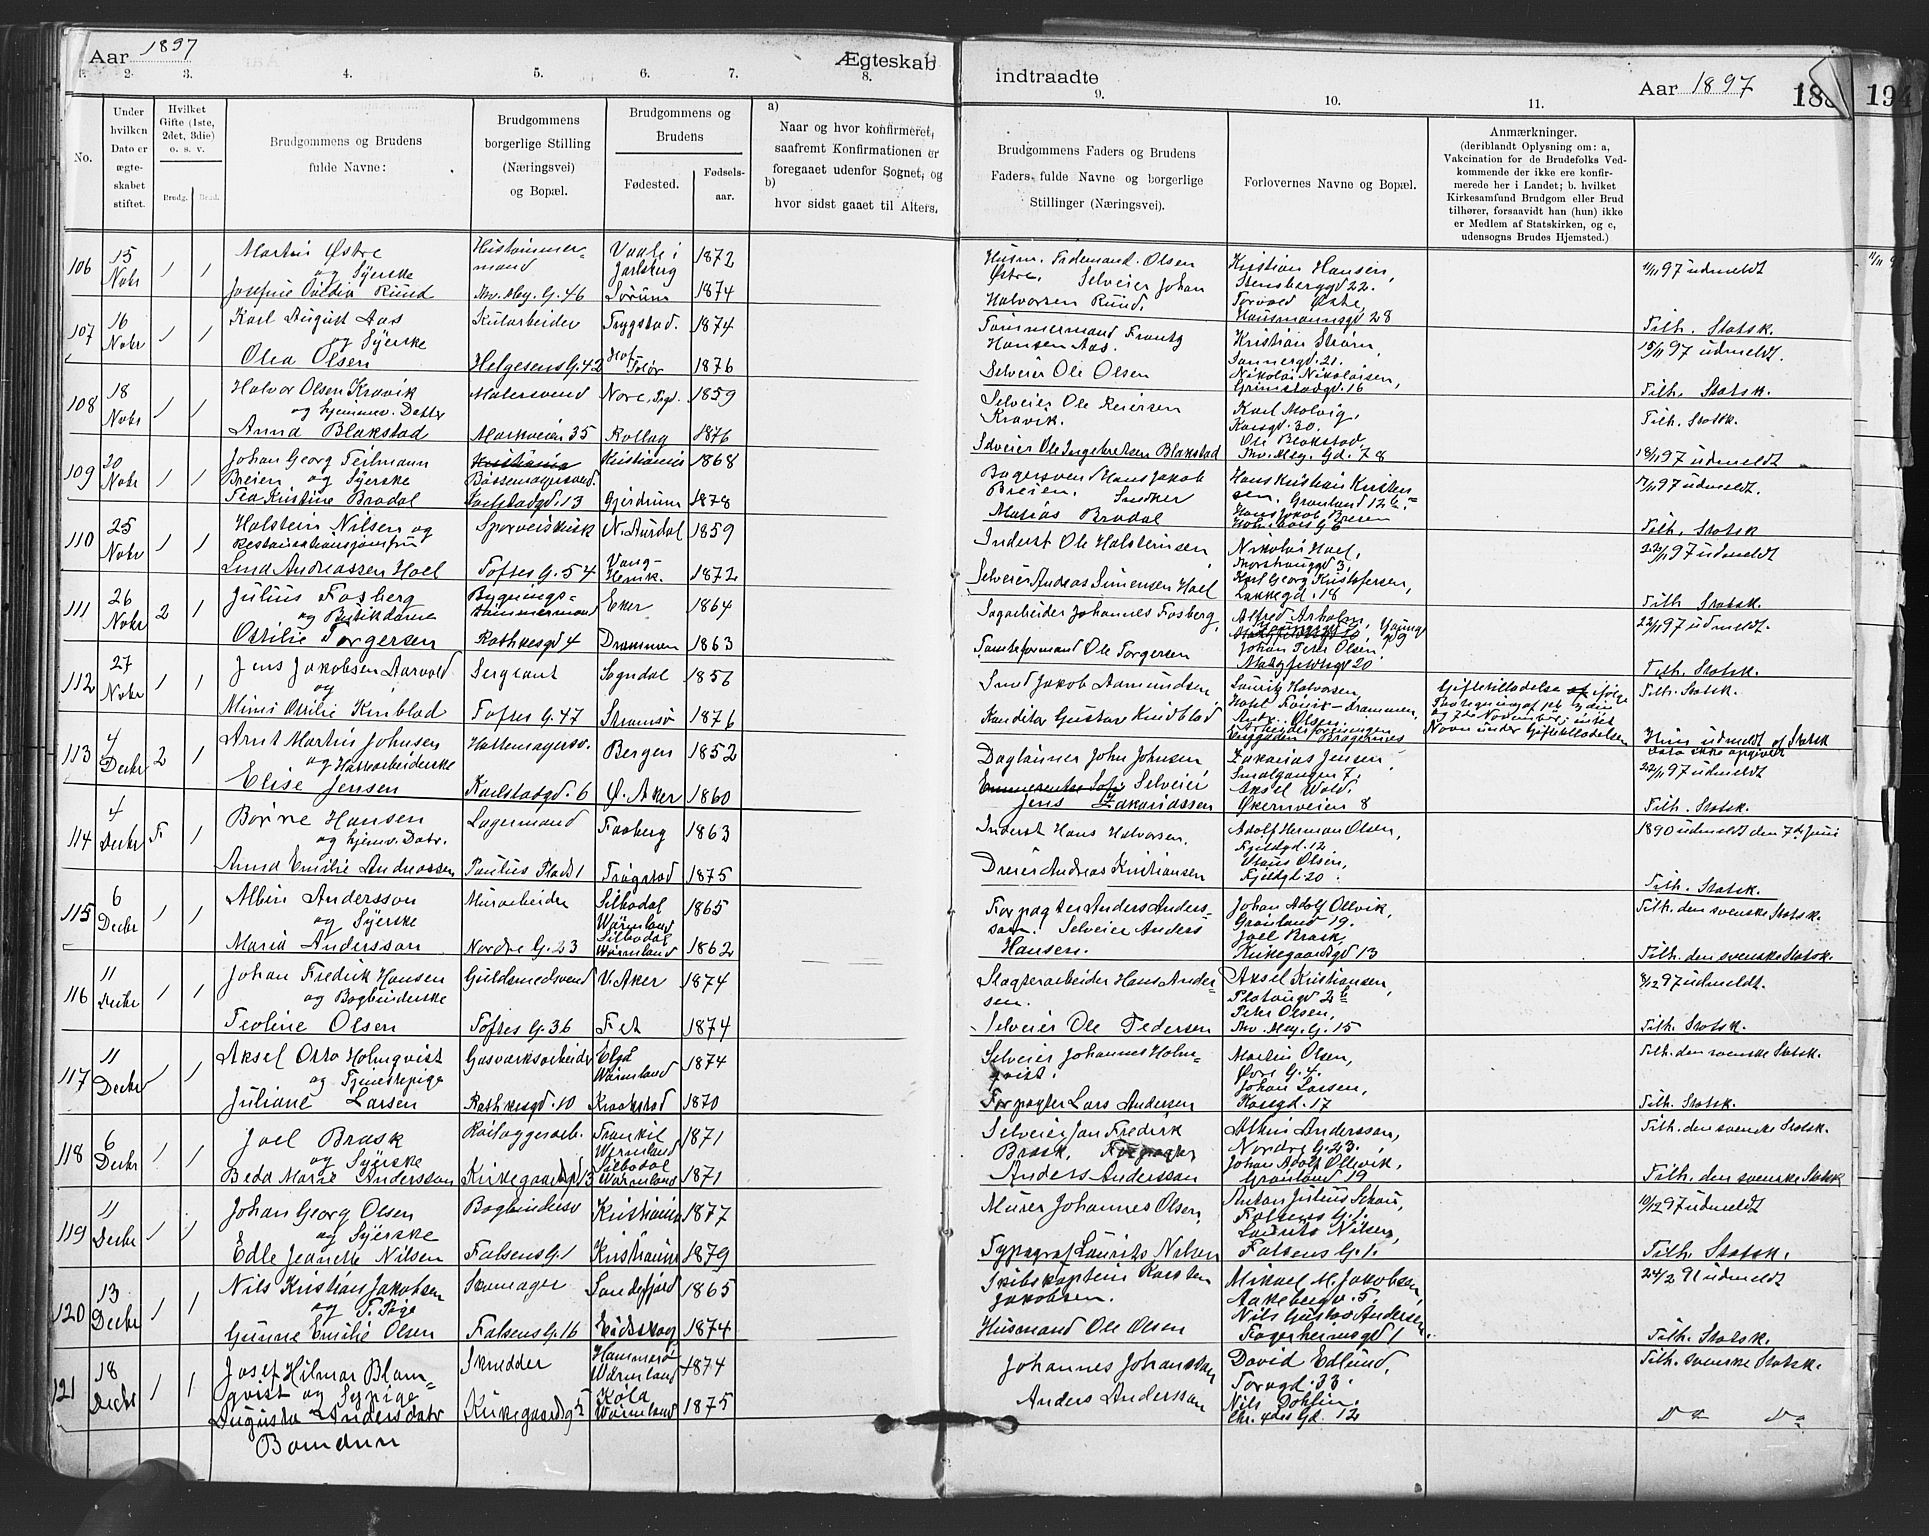 Aar 1897
Ægteskab
1. 2. 3. 4. 5. 6. 7. 8.
No.
Under hvilken Dato er ægteskabet stiftet.
Hvilket Gifte (1ste, 2det, 3die) o. s. v.
Brudg. Brud.
Brudgommens og Brudens fulde Navne:
Brudgommens borgerlige Stilling (Næringsvei) og Bopæl.
Brudgommens og Brudens
Fødested.
Fødselsaar.
a) Naar og hvor konfirmeret, saafremt Konfirmationen er foregaaet udenfor Sognet, og
b) hvor sidst gaaet til Alters.
106 15 Nobr 1 1 Martin Østre Hustømmermand Vaale i Jarlsberg 1872
og Syerske
Josefine Ovidia Rund Thv. Mey. G. 46 Sørum 1874
107 16 Nobr 1 1 Karl August Aas Kularbeider Trygstad. 1874
og Syerske
Olea Olsen Helgesens G. 42 Hof Solør 1876
108 18 Nobr 1 1 Halvor Olsen Kravik Malersvend Nore, Sigd. 1859
og hjemmev. Datter
Anna Blakstad Markveien 35 Rollag 1876
109 20 Nobr 1 1 Johan Georg Teilmann Kristiania Kristiania 1868
Breien og Syerske Bøssemagersvend
Tea Kristine Brodal Karlstadgd. 13 Gjerdrum 1878
110 25 Nobr 1 1 Halstein Nilsen og Sporveiskusk N. Aurdal 1859
Restaurationsjomfru
Lina Andreassen Hoel Toftes G. 54 Vang Hedm. 1872
111 26 Nobr 2 1 Julius Fosberg Bygnings-tømmermand Eker 1864
og Butikdame
Ottilie Torgersen Rathkesgd 4 Drammen 1863
112 27 Nobr 1 1 Jens Jakobsen Aarvold Sergeant Sogndal 1856
og
Mimi Ottilie Kniblad Toftes G. 47 Strømsø 1876
113 4 Decbr 2 1 Arnt Martin Johnsen Hattemagersv. Bergen 1852
og Hattearbeiderske
Elise Jensen Karlstadgd. 6 Ø. Aker 1860
114 4 Decbr F. 1 Børre Hansen Lagermand Fosberg 1863
og hjemv. Datr.
Anna Emilie Andreassen Paulus Plads 1 Trøgstad 1875
115 6 Decbr 1 1 Albin Andersson Murarbeider Silbodal Wärmland 1865
og Syerske
Maria Andersson Nordre G. 23 Silbodal Wärmland 1862
116 11 Decbr 1 1 Johan Fredrik Hansen Guldsmedsvend V. Aker 1874
og Bogbinderske
Teoline Olsen Toftes G. 36 Fet 1874
117 11 Decbr 1 1 Aksel Otto Holmqvist Gasværksarbeider Elgå Wärmland 1874
og Tjenestepige
Juliane Larsen Rathkesgd. 10 Kraakstad 1870
118 6 Decbr 1 1 Joel Brask Rørlæggerarb. Trankil Wärmland 1871
og Syerske
Beda Marie Andersson Kirkegaardsgd 13 Silbodal Wärmland 1871
119 11 Decbr 1 1 Johan Georg Olsen Bogbindersv Kristiania 1877
og Syerske
Edle Jeanette Nilsen Falsens G. 1 Kristiania 1879
120 13 Decbr 1 1 Nils Kristian Jakobsen Skomager Sandefjord 1865
og T. Pige
Gunne Emilie Olsen Falsens G. 16 Eidskog 1874
121 18 Decbr 1 1 Josef Hilmar Blomqvist og Sypige Skrædder Hammerø Wärmland 1874
Augusta Andersdatr Kirkegaardsg 5 Köla Wärmland 1875
Bomdun
indtraadte
Aar 1897
194
9. 10. 11.
Brudgommens Faders og Brudens Faders fulde Navne og borgerlige Stillinger (Næringsvei).
Forlovernes Navne og Bopæl.
Anmærkninger.
(deriblandt Oplysning om: a, Vakcination for de Brudefolks Vedkommende der ikke ere konfirmerede her i Landet; b. hvilket Kirkesamfund Brudgom eller Brud tilhører, forsaavidt han (hun) ikke er Medlem af Statskirken, og c, udensogns Brudes Hjemsted.)
Husm. Fademand. Olsen Østre. Selveier Johan Halvorsen Rund.
Kristian Hansen, Stensberggd 22.
Torvald Østre, Hausmannsgd 28
11/11 97 udmeldt
Tilh. Statsk.
Tømmermand Frantz Hansen Aas.
Selveier Ole Olsen
Kristian Strøm, Sannergd. 21.
Nikolai Nikolaisen, Grimstadgd. 16
15/11 97 udmeldt.
Tilh. Statsk.
Selveier Ole Reiersen Kravik.
Selveier Ole Ingebretsen Blakstad
Karl Molvig, Korsgd. 30.
Ole Blakstad, Thv. Mey. Gd. 78
Tilh. Statsk.
18/11 97 udmeldt
Bagersvend Hans Jakob Breien. Snedker
Matias Brodal
Hans Kristian Kristensen, Grønland 12 b.
Hans Jakob Breien
17/11 97 udmeldt.
Tilh. Statsk
Inderst Ole Halsteinsen
Selveier Andreas Simensen Hoel
Nikolai Hoel, Thorshauggd 3,
Karl Georg Kristofersen, Lakkegd. 18
22/11 97 udmeldt
Tilh Statsk.
Sagarbeider Johannes Fosberg,
Tomteformand Ole Torgersen
Alfred Arholen, Youngsgd 9
Johan Peter Olsen, Markveien 20
22/11 97 udmeldt.
Tilh. Statsk.
Smed Jakob Aamundsen
Konditor Gustav Knidblad
Lauritz Halvorsen, Hotel Fønix - Drammen,
Antr. Olsen, Arbeiderforeningen Bragernes
Giftetilladelse ifølge
Tilh. Statsk.
Hun udmeldt af Statsk
Dato ikke opgivet
Daglønner John Johnsen
Selveier Jens Zakariassen
Zakarias Jensen, Smalgangen 7,
Aksel Wold, Økernveien 8
22/11 97 udmeldt
Tilh. Statsk.
Inderst Hans Halvorsen.
Dreier Andreas Kristiansen
Adolf Herman Olsen, Fjeldgd. 12.
Klaus Olsen, Fjeldgd. 20
1890 udmeldt den 7de Juni
Tilh. Statsk.
Forpagter Anders Andersson. Selveier Anders Hansen.
Johan Adolf Ollvik, Grønland 19.
Joel Brask, Kirkegaardsgd 13
Tilh. den svenske Statsk.
Tilh. den svenske Statsk.
Slagterarbeider Hans Andersen.
Selveier Ole Pedersen
Aksel Kristiansen, Platousgd 2b
Peter Olsen, Thv. Mey. G. 15
8/12 97 udmeldt.
Tilh. Statsk.
Selveier Johannes Holmqvist.
Forpagter Lars Andersen
Martin Olsen, Øvre G. 4.
Johan Larsen, Korsgd. 17
Tilh. den svenske Statsk.
Tilh. Statsk.
Selveier Jan Frederk Brask. Forpagter
Anders Andersson
Albin Andersson, Nordre G. 23.
Johan Adolf Ollvik, Grønland 19
Tilh. den svenske Statsk.
Tilh. den svenske Statsk
Murer Johannes Olsen,
Typograf Laurits Nilsen
Anton Julius Schou, Falsens G. 1.
Laurits Nilsen, Falsens G. 1.
10/12 97 udmeldt
Tilh. Statsk.
Skibskaptein Karsten Jakobsen.
Husmand Ole Olsen
Mikael M. Jakobsen, Aakebergv. 5.
Nils Gustav Andersen, Fagerheimsgd 1
24/2 91 udmeldt
Tilh. Statsk.
Johannes Johansson
Anders Andersson
David Edlund, Torvgd. 33.
Nils Dohlin, Chr. 4des Gd. 12
Tilh. svenske Statsk.
Do Do